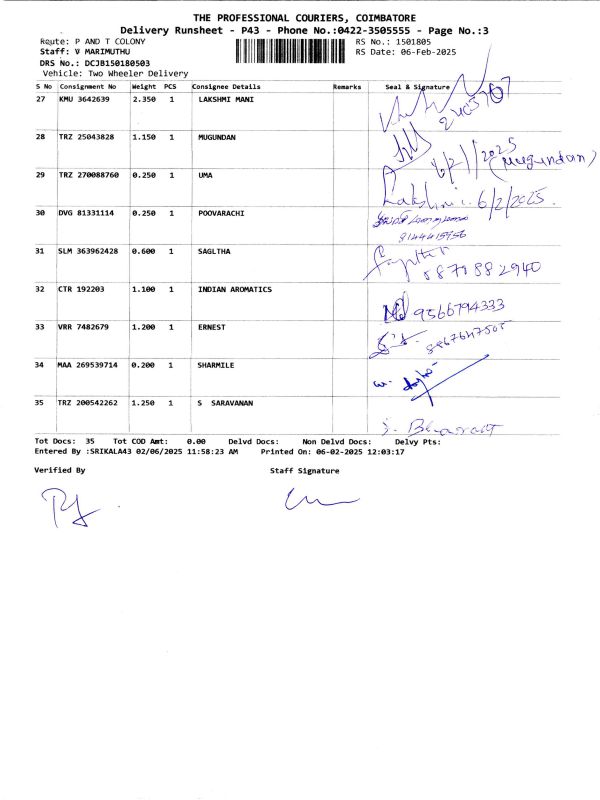 THE PROFESSIONAL COURIERS, COIMBATORE
Delivery Runsheet - P43 - Phone No.:0422-3505555 - Page No.:3
Route: P AND T COLONY
RS No.: 1501805
Staff: V MARIMUTHU
RS Date: 06-Feb-2025
DRS No.: DCJB150180503
Vehicle: Two Wheeler Delivery
S No Consignment No Weight PCS Consignee Details Remarks Seal & Signature
27 KMU 3642639 2.350 1 LAKSHMI MANI
28 TRZ 25043828 1.150 1 MUGUNDAN 6/2/2025
(Mugundan)
29 TRZ 270088760 0.250 1 UMA
Lakshmi. 6/2/2025.
30 DVG 81331114 0.250 1 POOVARACHI
31 SLM 363962428 0.600 1 SAGLTHA
8870882940
32 CTR 192203 1.100 1 INDIAN AROMATICS
9566794333
33 VRR 7482679 1.200 1 ERNEST
34 MAA 269539714 0.200 1 SHARMILE
35 TRZ 200542262 1.250 1 S SARAVANAN
Tot Docs: 35 Tot COD Amt: 0.00 Delvd Docs: Non Delvd Docs: Delvy Pts:
Entered By :SRIKALA43 02/06/2025 11:58:23 AM Printed On: 06-02-2025 12:03:17
Verified By Staff Signature